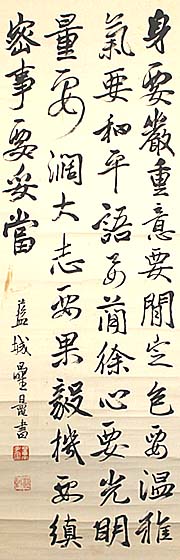 身要嚴重意要閒定色要温雅
氣要和平語要簡徐心要光明
量要濶大志要果毅機要縝
密事要妥當
藍城 書